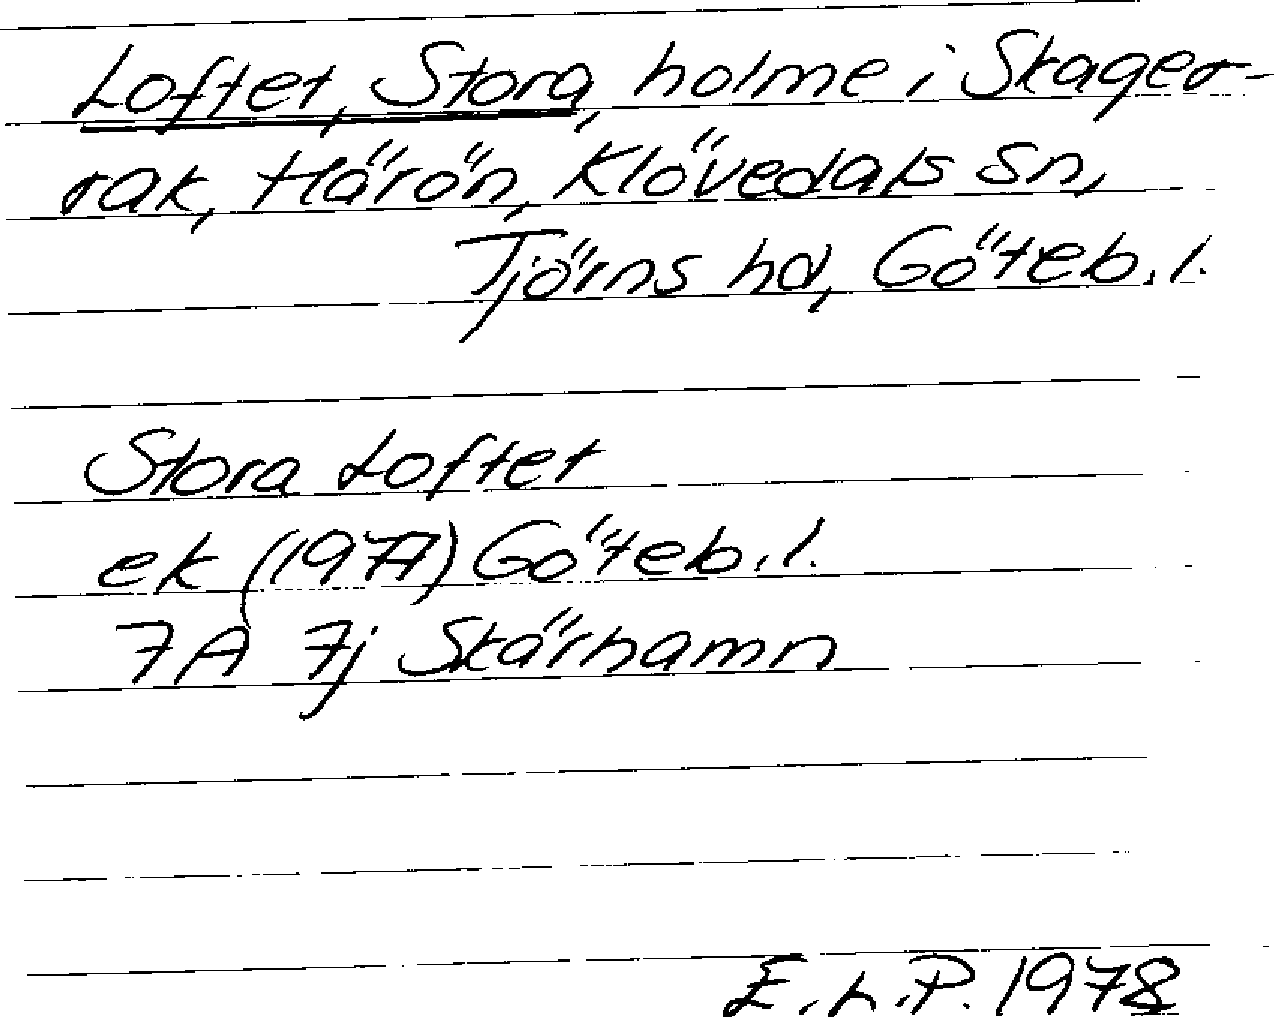 Loftet, Stora, holme i Skager-
rak, Härön, Klövedals sn,
Tjörns hd, Göteb. l.
Stora Loftet
ek (1977) Göteb. l.
7A 7j Skärhamn
E.L.P. 1978